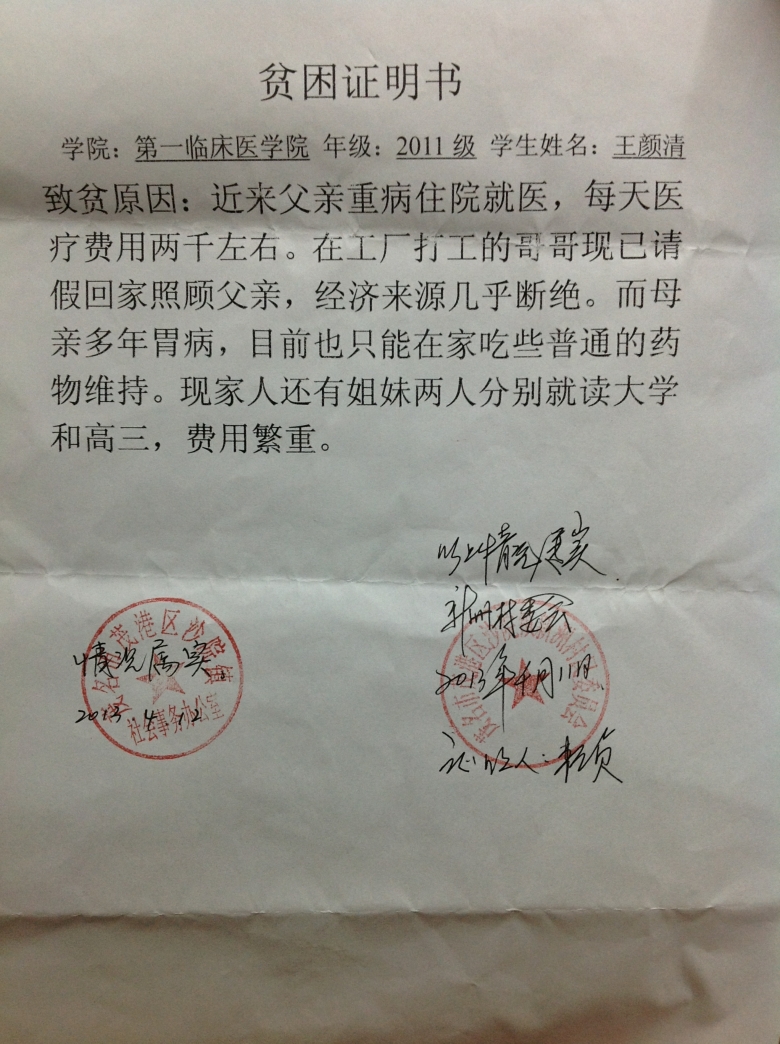 贫困证明书
学院：第一临床医学院 年级：2011级 学生姓名：王颜清
致贫原因：近来父亲重病住院就医，每天医
疗费用两千左右。在工厂打工的哥哥现已请
假回家照顾父亲，经济来源几乎断绝。而母
亲多年胃病，目前也只能在家吃些普通的药
物维持。现家人还有姐妹两人分别就读大学
和高三，费用繁重。
以上情况属实
村委会
2013年4月11日
证明人：
茂名市茂港区沙院镇
情况属实
2013.4.12
社会事务办公室
茂名市 港区沙 洲村 委员会